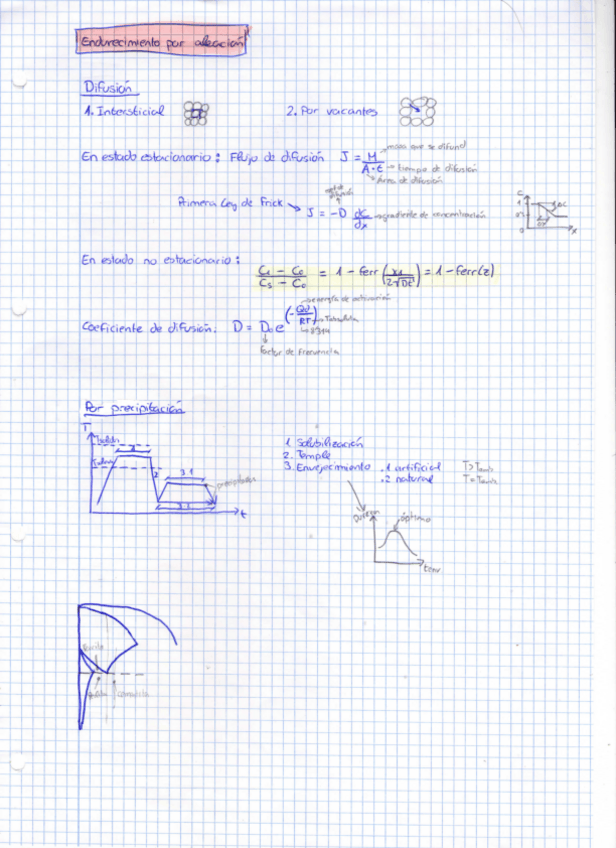 Endurecimiento por aleación
Difusión
1. Intersticial
2. Por vacantes
En estado estacionario: Flujo de difusión J = M / A·t
masa que se difund
tiempo de difusión
Área de difusión
Primera Ley de Frick J = -D dc/dx
gradiente de concentración
C
x
En estado no estacionario:
C₁ - C₀ / Cs - C₀ = 1 - ferr (x₁ / 2√Dt) = 1 - ferr(z)
Coeficiente de difusión: D = D₀e^(-Qd/RT)
energía de activación
8'314
factor de frecuencia
Por precipitación
T
2
3.1
precipitación
t
1 Solubilización
2. Temple
3. Envejecimiento .1 artificial
.2 natural
óptimo
tenv